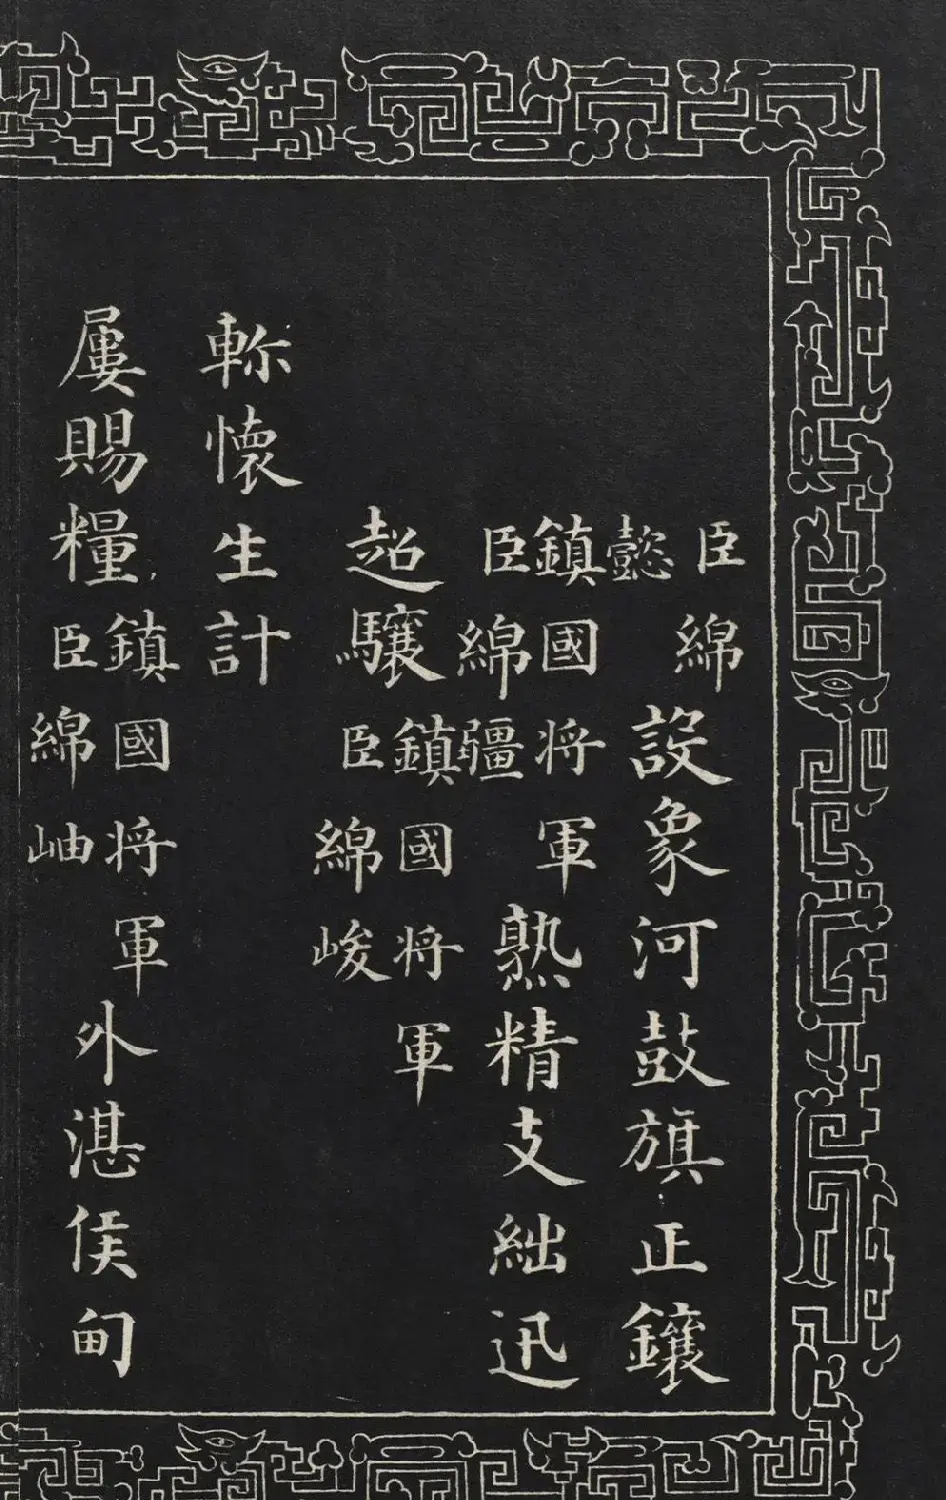 臣綿
懿
設象河鼓旗正鑲
鎮國将軍
臣綿疆
熟精支絀迅
超驤
鎮國将軍
臣綿峻
軫懷生計
屢賜糧
鎮國将軍
臣綿岫
外湛侯甸